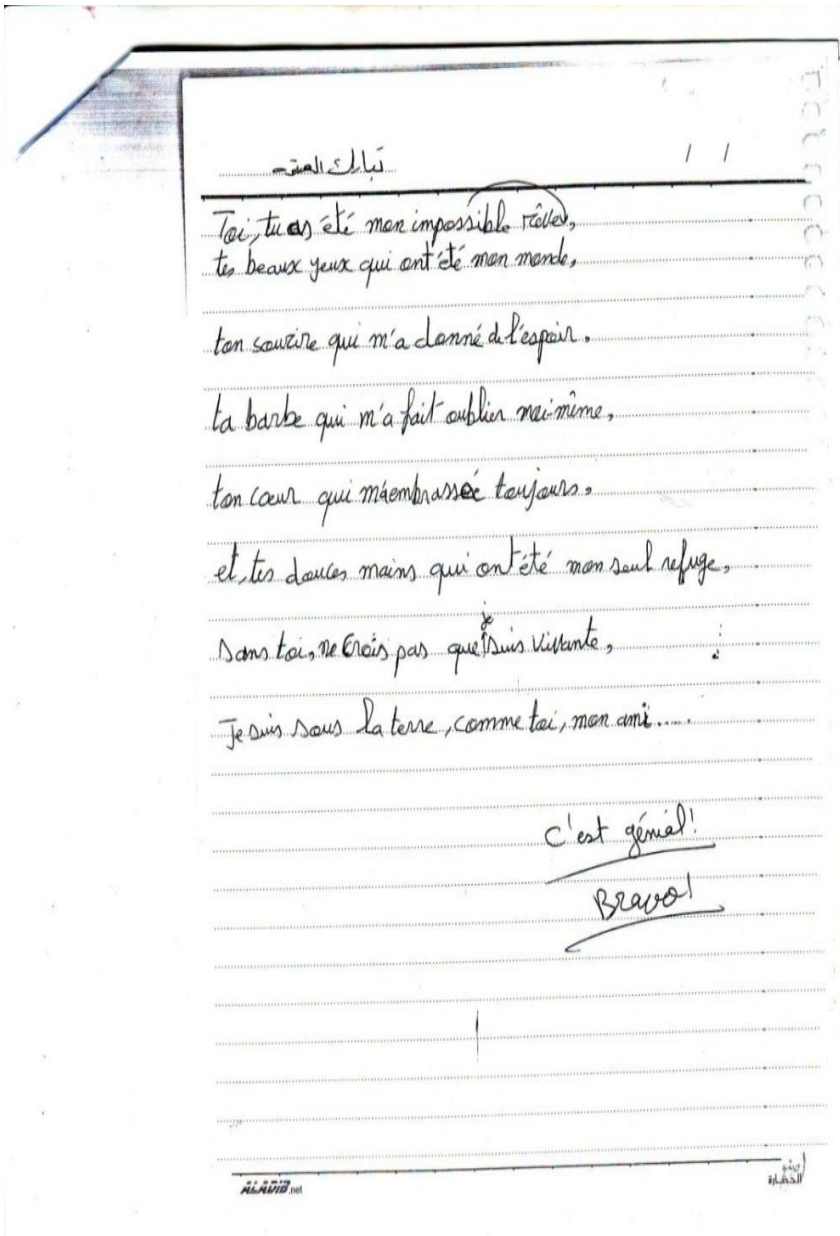 تبارك
/ /
Toi, tu as été mon impossible rêve,
tes beaux yeux qui ont été mon monde,
ton sourire qui m'a donné de l'espoir,
ta barbe qui m'a fait oublier moi-même,
ton cœur qui m'a embrassée toujours,
et, tes douces mains qui ont été mon seul refuge,
sans toi, ne crois pas que je suis vivante,
Je suis sous la terre, comme toi, mon ami.....
C'est génial!
Bravo!
ALADIB.net
الحضارة